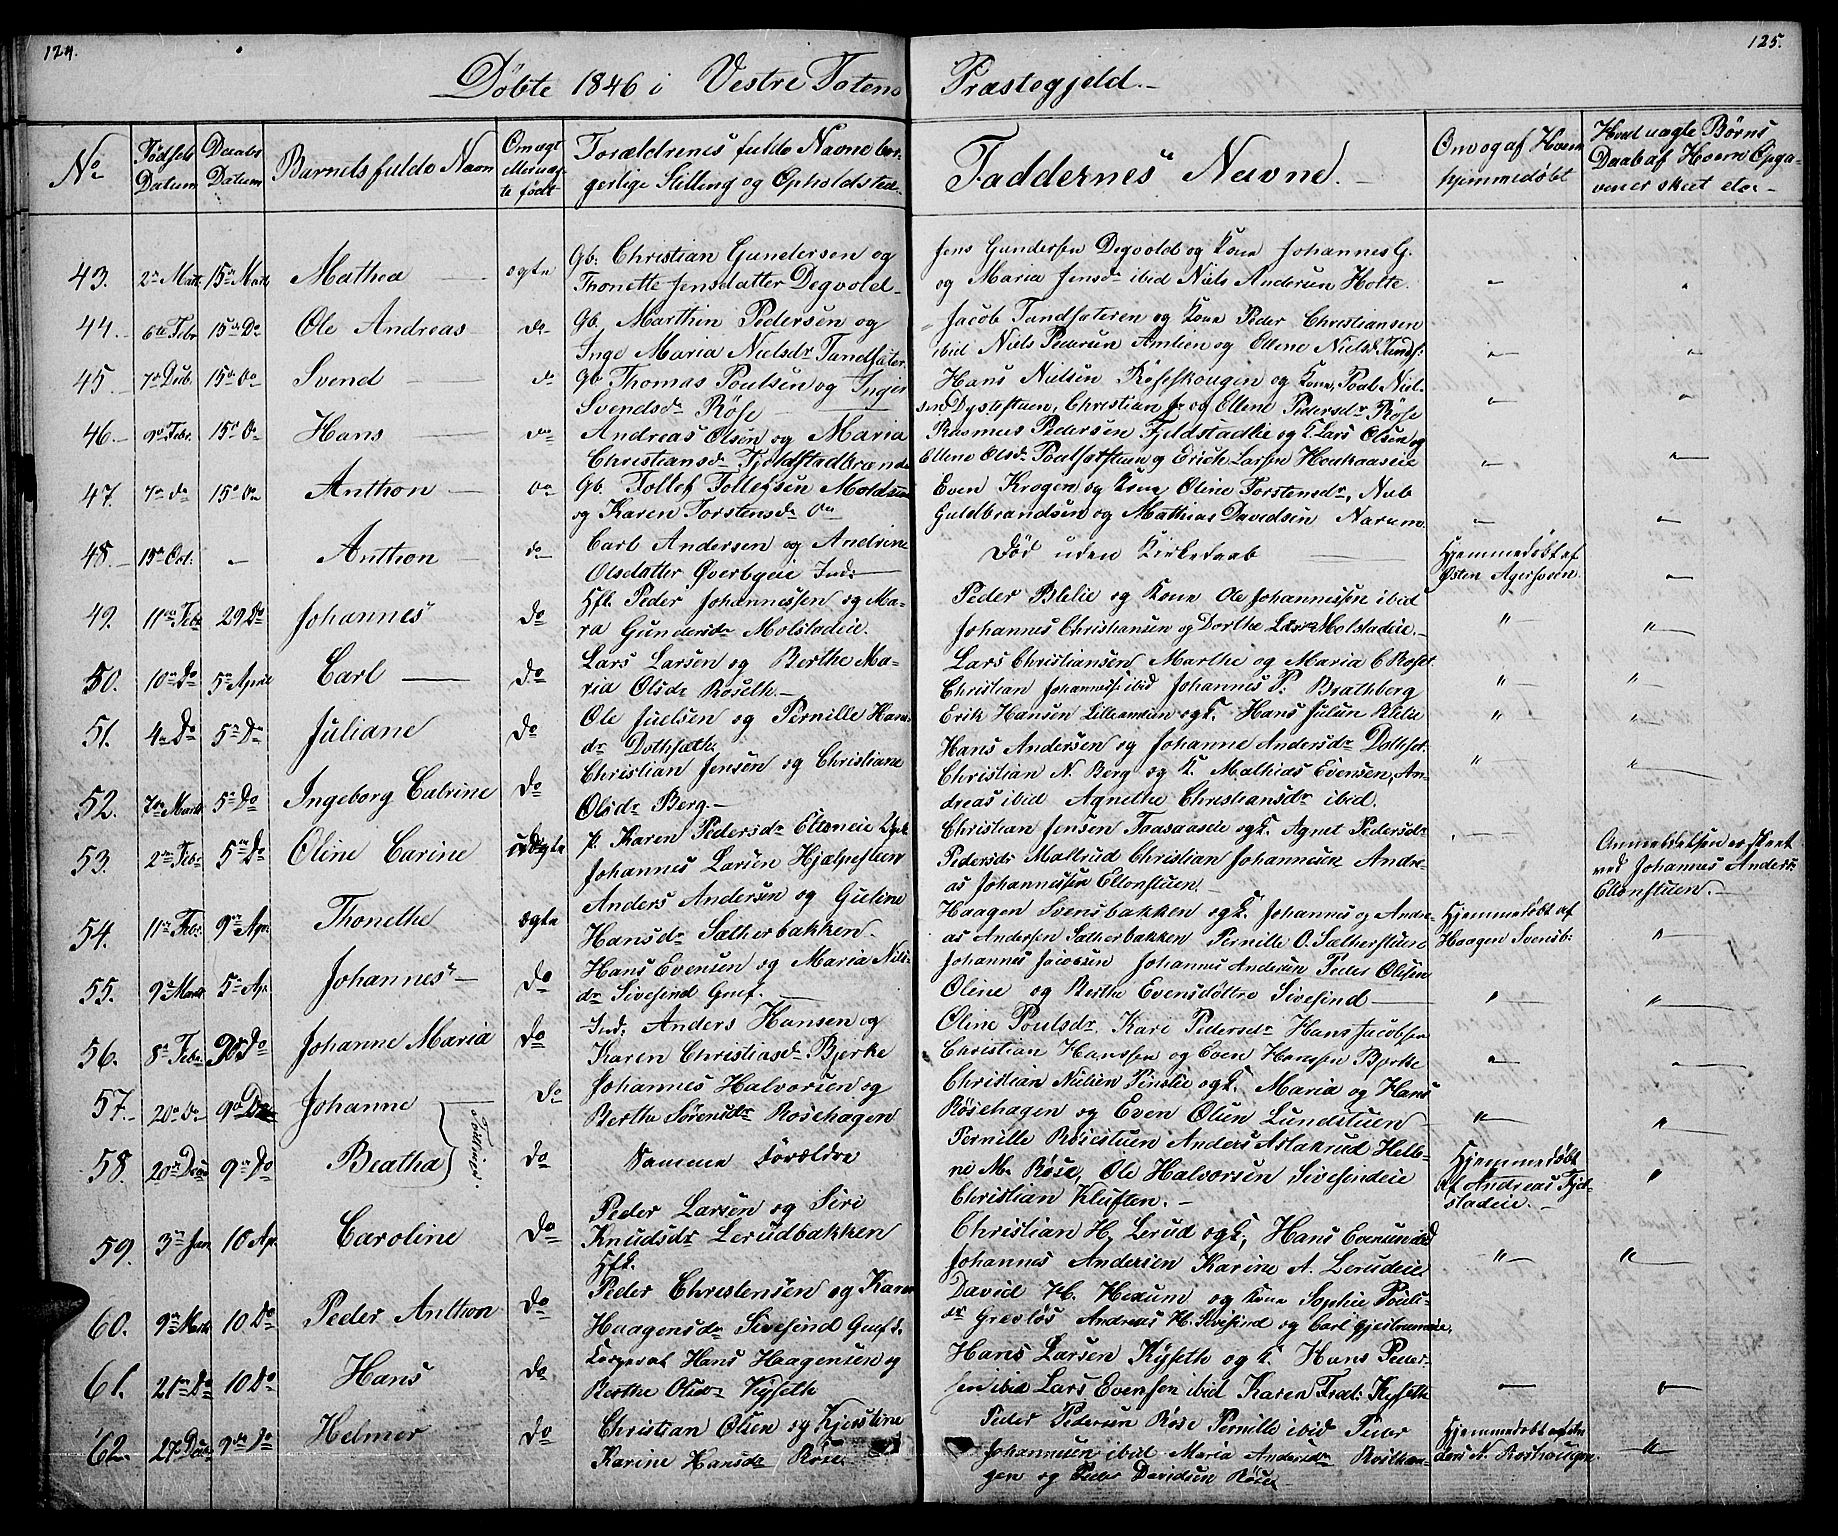 124.
125.
Döbte 1846 i Vestre Totens Præstegjeld.-
No
Fødsels Datum
Daabs Datum
Barnets fulde Navn
Om ægte eller uægte født
Forældrenes fulde Navne borgerlige Stilling og Opholdsted
Faddernes Navne.-
Om og af Hvem hjemmedøbt
Hvad uægte Børns Daab af Hvem Opgaven er skeet etc.-
43. 2de Mart. 15de Mart. Mathea ægte
Gb. Christian Gundersen og
Thonette Jensdatter Degvold
Jens Gundersen Degvold og Kone Johannes G.
og Maria Jensdr ibid Niels Andersen Holte.
44. 6te Febr 15de Do Ole Andreas do
Gb. Marthin Pedersen og
Inge Maria Nielsdr Tandsæter
Jacob Tandsæteren og Kone Peder Christiansen
ibid Niels Pedersen Amlien og Ellene Nielsd. Tands:
45. 15de Do Svend do
Gb Thomas Poulsen og Inger
Svendsdr Røse
Hans Nielsen Røseskougen og Kone, Poul Niel-
sen Dystestuen, Christian og Ellene Pedersdr Røse
46. 9de Febr. 15de Do Hans do
Andreas Olsen og Maria
Christiansdr Fjeldstadbrænde
Rasmus Pedersen Fjeldstadlie og K. Lars Olsen og
Ellene Olsdr og Erich Larsen
47. 7de do 15de Do Anthon do
Gb. Tollef Tollefsen
og Karen Torstensdr do
Even Krogen og Kone Oline Torstensdr, Niels
Guldbrandsen og Mathias Davidsen Narum
48. 15de Oct. - Anthon do
Carl Andersen og Andrine
Olsdatter Øverbyeie Ind:
Død uden Kirkedaab
Hjemmedøbt af
Østen Agersveen
49. 11te Febr 29 Do Johannes Do
Hfl. Peder Johannessen og Ma-
ria Gundersdr Molstadeie.
Peder Blelie og Kone Ole Johannessen ibid
Johannes Christiansen og Dorthe Lars Molstadeie.-
50. 10de Do 5te April Carl Do
Lars Larsen og Berthe Ma-
ria Olsdr Roseth.-
Lars Christiansen Marthe og Maria C Roset
Christian Johanness. ibid Johannes P: Brathberg
51. 4de Do 5te Do Juliane Do
Ole Juelsen og Pernille Hans
dr Dothseth
Erik Hansen Lilleamlien og K. Hans Julsen Blelie
Hans Andersen og Johanne Andersdr Dothset
52. 7de Marts 5te Do Ingeborg Catrine Do
Christian Jensen og Christiane
Olsdr Berg.-
Christian N. Berg og K. Mathias Evensen, An-
dreas ibid Agnethe Christiansdr ibid.
53. 2de Febr 5te Do Oline Carine uægte
P. Karen Pedersdr Eltoneie
Johannes Larsen Hjælpesteen
Christian Jensen Taasaaseie og K. Agnet Pedersdr
Pedersdr Maltrud Christian Johannesen Andre-
as Johannessen Eltonstuen.
Anmeldelsen er skeet
ved Johannes Anders:
Eltonstuen.-
54. 11te Febr. 9de Apr. Thonethe ægte
Anders Andersen og Guline
Hansdr Sætherbakken.
Haagen Svensbakken og K. Johannes og Andre-
as Andersen Sætherbakken Pernille O. Sætherstuen
Hjemmedøbt af
Haagen Svensb:
55. 9de Marts 5te Ap. Johannes Do
Hans Evensen og Maria Nils-
dr Sivesind Gmf.
Johannes Jacobsen Johannes Andersen Peder Olesen
Oline og Berthe Evensdøttre Sivesind
56. 8de Febr. Do Johanne Maria Do
Ind. Anders Hansen og
Karen Christiansdr Bjerke
Oline Poulsdr Kari Pedersdr Hans Jacobsen
Christian Hanssen og Even Hanssen Bjerke
57. 20de Do 9de Johanne Do
Johannes Halvorsen og
Berthe Sørensdr Rosehagen
Christian Nielsen Finslie og K. Maria og Hans
Røsehagen og Even Olsen Lundstuen
Tvillinger.
58. 9de Do Beatha Do
Samme Forældre
Pernille Røsestuen Anders Aslakrud Hele-
ne M. Røse, Ole Halvorsen Sivesindeie
Christian Kluften.-
Hjemmedøbt
af Andreas Fjel-
stadeie.-
59. 3de Jan 10 Ap. Caroline Do
Peder Larsen og Siri
Knudsdr Lerudbakken
Hfl.
Christian H. Lerud og K., Hans Evensen ibid
Johannes Andersen Karine A. Lerudeie
60. 9de Marts 10. Do Peder Anthon Do
Peder Christensen og Karen
Haagensdr Sivesind Gmf.
David H. Hexum og Kone Sophie Pouls-
dr Grevløs Andreas H. Sivesind og Carl
61. 21de Do 10 Do Hans Do
Korporal Hans Haagensen og
Berthe Olsdr Kyseth
Hans Larsen Kyseth og K. Hans Peder-
sen ibid Lars Evensen ibid Karen Fred: Kyseth
62. 9de Do Helmer Do
Christian Olsen og Kjerstine
Karine Hansdr Røse
Peder Pedersen Røse Pernille ibid Peder
Johannesen ibid Maria Andersdr Rosehau-
gen og Peder Davidsen Røse
Hjemmedøbt af An-
ders N. Roshougen.